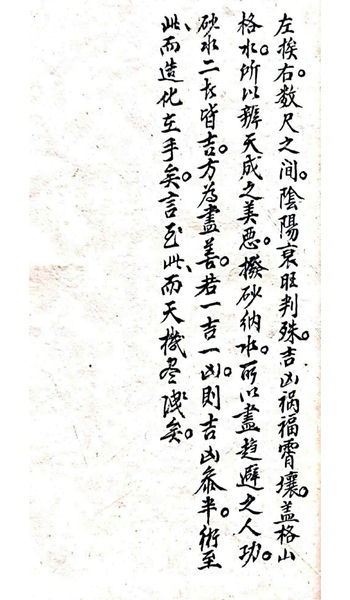 左挨右。数尺之间。陰陽衰旺判殊。吉凶祸福霄壤。盖格山
格水。所以辨天成之美恶。撥砂納水。所以盡趋避之人功。
砂水二者皆吉。方為盡善。若一吉一凶。則吉凶叅半。術至
此、而造化在手矣。言至此、而天機尽洩矣。